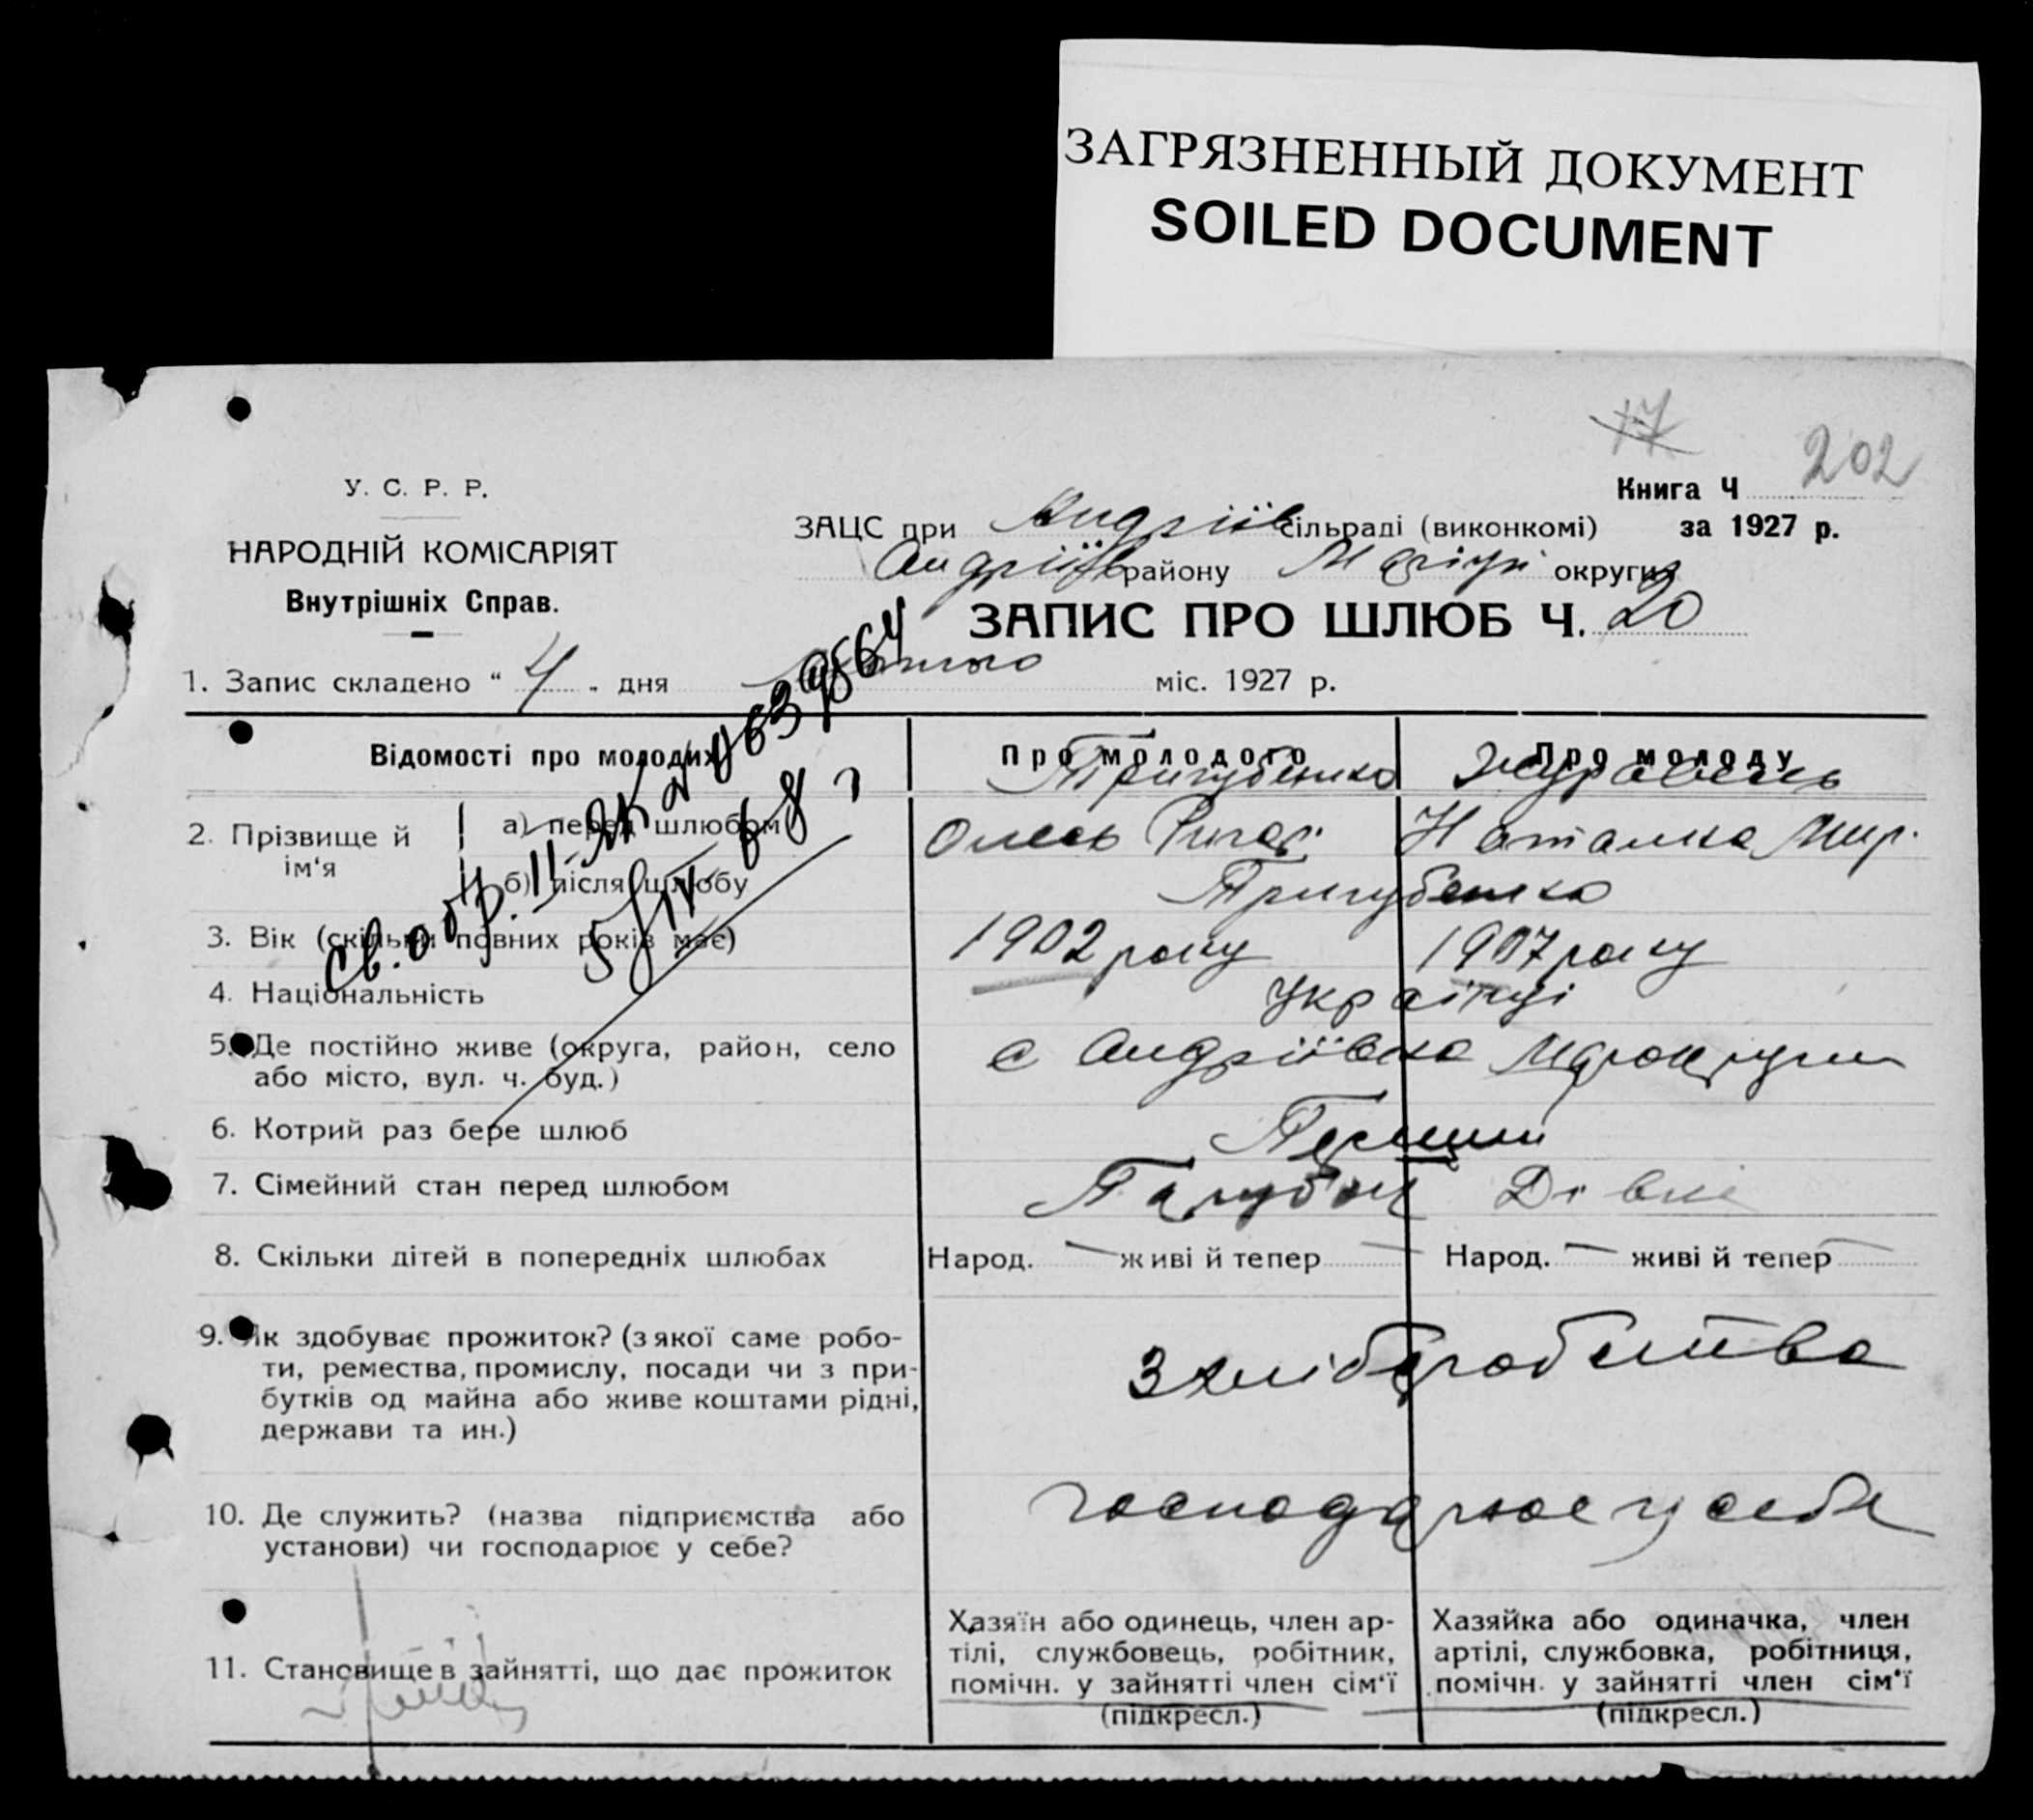 ЗАГРЯЗНЕННЫЙ ДОКУМЕНТ
SOILED DOCUMENT
17
202
У. С. Р. Р.
НАРОДНІЙ КОМІСАРІЯТ
Внутрішніх Справ.
Книга Ч
за 1927 р.
ЗАЦС при Андріїв сільраді (виконкомі)
Андріїв району Маріуп округи
ЗАПИС ПРО ШЛЮБ Ч. 20
1. Запис складено “ 4 „ дня Лютого міс. 1927 р.
Відомості про молодих
Про молодого
Про молоду
2. Прізвище й ім‘я
а) перед шлюбом
Тригубенко
Олесь Григ.
Журавель
Наталка Мир.
б) після шлюбу
Тригубенко
3. Вік (скільки повних років має) 1902 року 1907 року
4. Національність Українці
5. Де постійно живе (округа, район, село
або місто, вул. ч. буд.)
с Андріївка Марокруги
6. Котрий раз бере шлюб Перший
7. Сімейний стан перед шлюбом Парубок Дівка
8. Скільки дітей в попередніх шлюбах Народ. — живі й тепер — Народ. — живі й тепер —
9. Як здобуває прожиток? (з якої саме робо-
ти, ремества, промислу, посади чи з при-
бутків од майна або живе коштами рідні,
держави та ин.)
З хліборобства
10. Де служить? (назва підприємства або
установи) чи господарює у себе?
господарює у себе
11. Становище в зайнятті, що дає прожиток
Хазяїн або одинець, член ар-
тілі, службовець, робітник,
помічн. у зайнятті член сім‘ї
(підкресл.)
Хазяйка або одиначка, член
артілі, службовка, робітниця,
помічн. у зайнятті член сім‘ї
(підкресл.)
Св. обр. II-ЯК №
5/IV 68 г